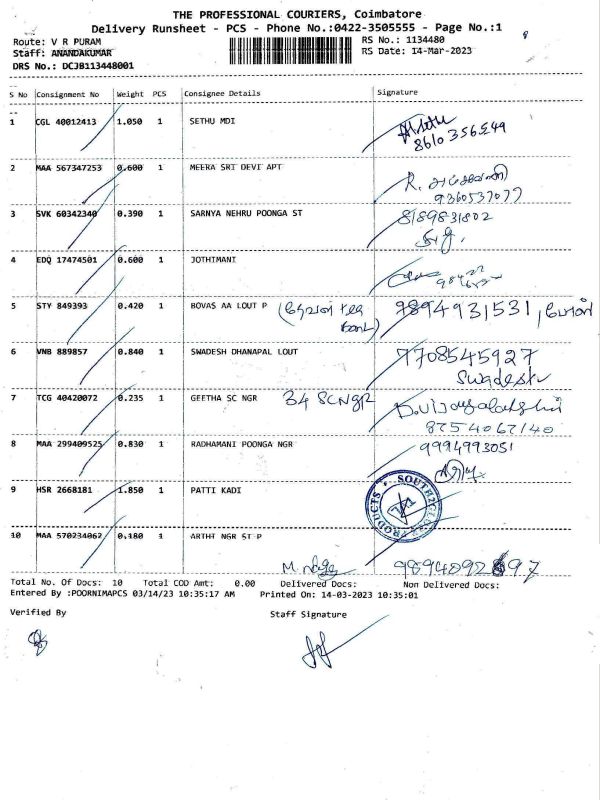 THE PROFESSIONAL COURIERS, Coimbatore
Delivery Runsheet - PCS - Phone No.:0422-3505555 - Page No.:1
Route: V R PURAM
RS No.: 1134480
Staff: ANANDAKUMAR
RS Date: 14-Mar-2023
DRS No.: DCJB113448001
S No Consignment No Weight PCS Consignee Details Signature
1 CGL 40012413 1.050 1 SETHU MDI
8610 356549
2 MAA 567347253 0.600 1 MEERA SRI DEVI APT
R.
9360537077
3 SVK 60342340 0.390 1 SARNYA NEHRU POONGA ST 8189831802
4 EDQ 17474501 0.600 1 JOTHIMANI
5 STY 849393 0.420 1 BOVAS AA LOUT P 9894931531,
6 VNB 889857 0.840 1 SWADESH DHANAPAL LOUT 7708545927
Swadesh
7 TCG 40420072 0.235 1 GEETHA SC NGR 34 SCNGR
8754067140
8 MAA 299409525 0.830 1 RADHAMANI POONGA NGR 9994993051
9 HSR 2668181 1.850 1 PATTI KADI
PRODUCTS
10 MAA 570234062 0.180 1 ARTHT NGR ST P
Total No. Of Docs: 10 Total COD Amt: 0.00 Delivered Docs: Non Delivered Docs:
Entered By :POORNIMAPCS 03/14/23 10:35:17 AM Printed On: 14-03-2023 10:35:01
Verified By Staff Signature